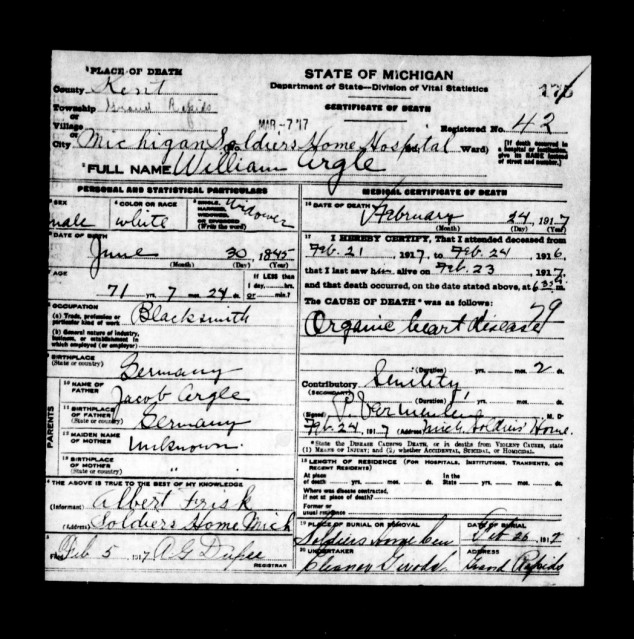 PLACE OF DEATH
County Kent
Township Grand Rapids
or
Village
or
City Michigan Soldiers Home Hospital Ward)
STATE OF MICHIGAN
Department of State—Division of Vital Statistics
CERTIFICATE OF DEATH
MAR -7 '17
Registered No. 42
[If death occurred in a hospital or institution, give its NAME instead of street and number.]
FULL NAME William Argle
PERSONAL AND STATISTICAL PARTICULARS
SEX male
COLOR OR RACE white
SINGLE, MARRIED, WIDOWED, (Write the word) Widower
DATE OF BIRTH
June 30, 1845
(Month) (Day) (Year)
AGE
71 yrs. 7 mos. 24 ds.
If LESS than 1 day....hrs. or....min.?
OCCUPATION
(a) Trade, profession or particular kind of work Blacksmith
(b) General nature of industry, business, or establishment in which employed (or employer)
BIRTHPLACE (State or country) Germany
PARENTS
10 NAME OF FATHER Jacob Argle
11 BIRTHPLACE OF FATHER (State or country) Germany
12 MAIDEN NAME OF MOTHER Unknown.
13 BIRTHPLACE OF MOTHER (State or country) "
THE ABOVE IS TRUE TO THE BEST OF MY KNOWLEDGE
(Informant) Albert Frisk
(Address) Soldiers Home Mich
Filed Feb 5 1917 A G Dupee
REGISTRAR
MEDICAL CERTIFICATE OF DEATH
16 DATE OF DEATH
February 24, 1917
(Month) (Day) (Year)
17 I HEREBY CERTIFY, That I attended deceased from
Feb. 21 1917, to Feb. 24 1916,
that I last saw him alive on Feb. 23 1917,
and that death occurred, on the date stated above, at
The CAUSE OF DEATH* was as follows:
79
Organic heart disease
(Duration) yrs. mos. 2 ds.
Contributory Senility
(SECONDARY)
(Duration) yrs. mos. ds.
(Signed) M. D.
Feb. 24, 1917 (Address) Mich. Soldiers' Home.
*State the DISEASE CAUSING DEATH, or in deaths from VIOLENT CAUSES, state (1) MEANS OF INJURY; and (2) whether ACCIDENTAL, SUICIDAL, or HOMICIDAL.
18 LENGTH OF RESIDENCE (FOR HOSPITALS, INSTITUTIONS, TRANSIENTS, OR RECENT RESIDENTS)
At place of death yrs. mos. ds. In the State yrs. mos. ds.
Where was disease contracted, if not at place of death?
Former or usual residence
19 PLACE OF BURIAL OR REMOVAL
Soldiers Home Cem
DATE OF BURIAL
Feb 26 1917
20 UNDERTAKER
Eleanor
ADDRESS
Grand Rapids